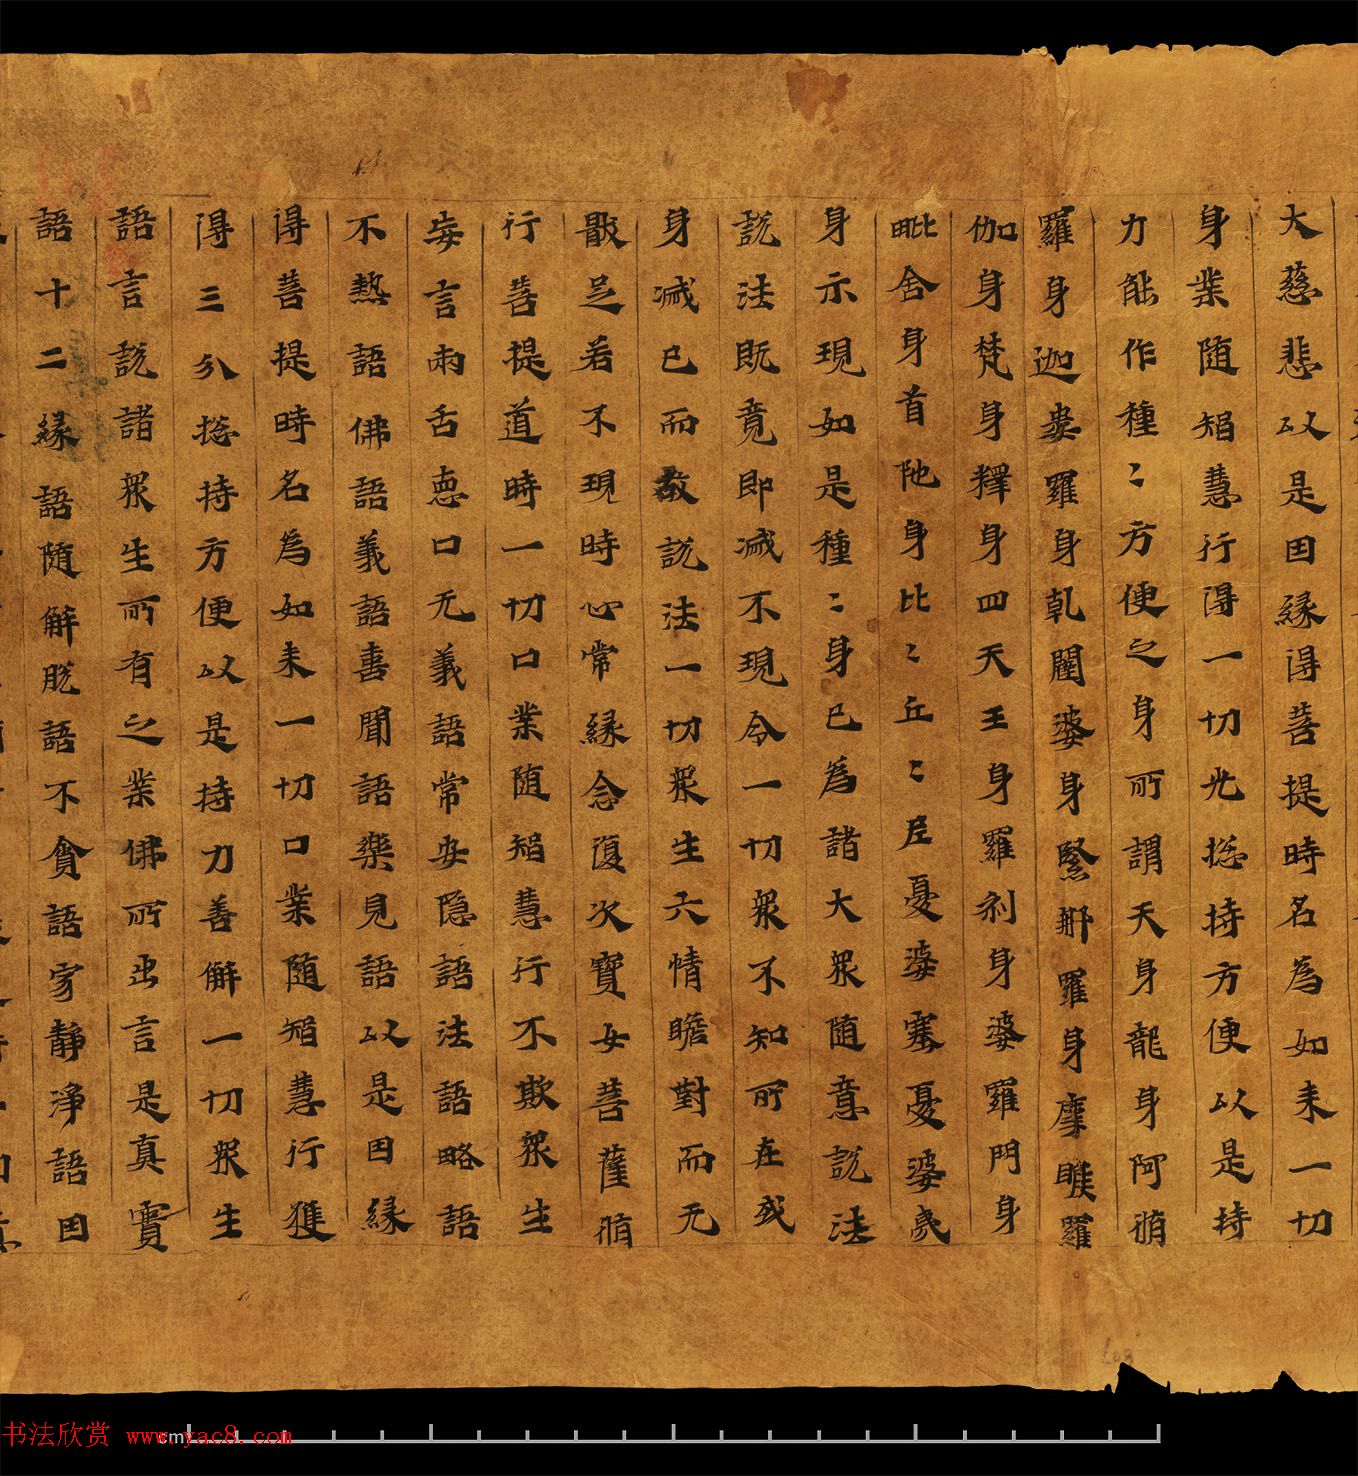 大慈悲以是因緣得菩提時名為如来一切
身業随智慧行得一切光捴持方便以是持
力能作種〻方便之身所謂天身龍身阿脩
羅身迦婁羅身乹闥婆身緊那羅身摩睺羅
伽身梵身釋身四天王身羅刹身婆羅門身
毗舍身首陁身比〻丘〻尼憂婆塞憂婆夷
身示現如是種〻身已為諸大衆随意說法
說法既竟即滅不現令一切衆不知所在或
身滅已而教說法一切衆生六情瞻對而无
猒足若不現時心常緣念復次寶女菩薩脩
行菩提道時一切口業随智慧行不欺衆生
妄言兩舌惡口无義語常安隐語法語略語
不熱語佛語義語喜聞語樂見語以是因緣
得菩提時名為如来一切口業随智慧行獲
得三分捴持方便以是持力善解一切衆生
語言說諸衆生所有之業佛所出言是真實
語十二緣語随解脫語不貪語寂靜淨語因
书法欣赏 www.yac8.com
cm